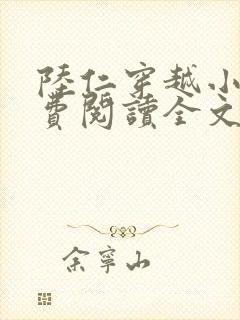 陸仁穿越小
費閱讀全文
余寧山